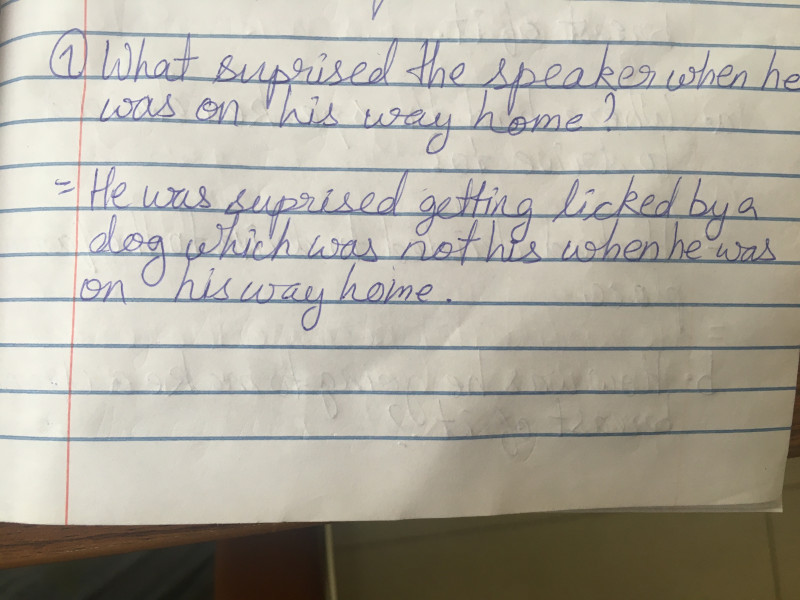 ① What suprised the speaker when he
was on his way home?
= He was suprised getting licked by a
dog which was not his when he was
on his way home.